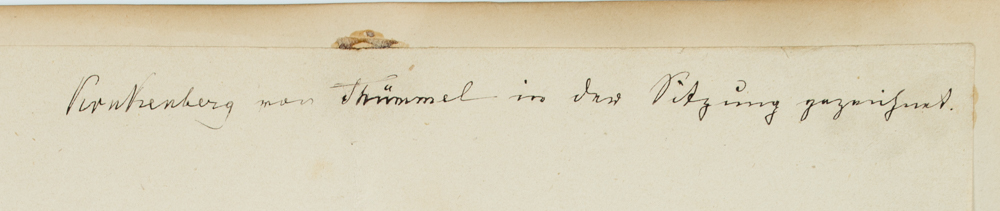 Krukenberg von Thümmel in der Sitzung gezeichnet.